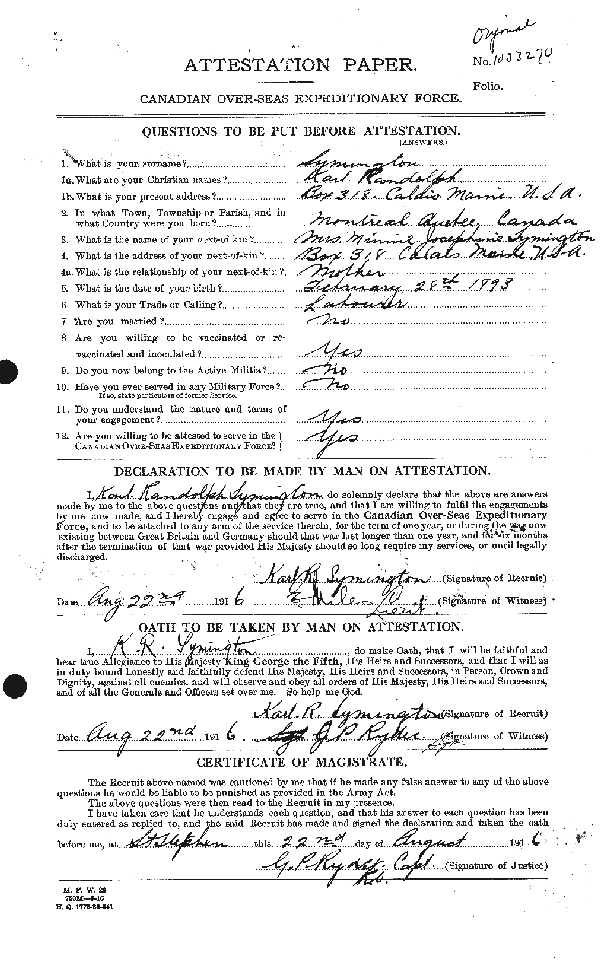 Original
ATTESTATION PAPER.
No. 1033270
Folio.
CANADIAN OVER-SEAS EXPEDITIONARY FORCE.
QUESTIONS TO BE PUT BEFORE ATTESTATION.
(ANSWERS.)
1. What is your surname? Symington
1a. What are your Christian names? Karl Randolph
1b. What is your present address? Box 318 Calais Maine U.S.A.
2. In what Town, Township or Parish, and in
what Country were you born? Montreal Quebec, Canada
3. What is the name of your next-of-kin? Mrs. Minnie Josephine Symington
4. What is the address of your next-of-kin? Box 318 Calais Maine U.S.A.
4a. What is the relationship of your next-of-kin? Mother
5. What is the date of your birth? February 28th 1893
6. What is your Trade or Calling? Labourer
7. Are you married? No
8. Are you willing to be vaccinated or re-
vaccinated and inoculated? Yes
9. Do you now belong to the Active Militia? No
10. Have you ever served in any Military Force? No
If so, state particulars of former Service.
11. Do you understand the nature and terms of
your engagement? Yes
12. Are you willing to be attested to serve in the
CANADIAN OVER-SEAS EXPEDITIONARY FORCE? Yes
DECLARATION TO BE MADE BY MAN ON ATTESTATION.
I, Karl Randolph Symington, do solemnly declare that the above are answers
made by me to the above questions and that they are true, and that I am willing to fulfil the engagements
by me now made, and I hereby engage and agree to serve in the Canadian Over-Seas Expeditionary
Force, and to be attached to any arm of the service therein, for the term of one year, or during the war now
existing between Great Britain and Germany should that war last longer than one year, and for six months
after the termination of that war provided His Majesty should so long require my services, or until legally
discharged.
Karl R. Symington (Signature of Recruit)
Date Aug 22nd 1916 Lieut (Signature of Witness)
OATH TO BE TAKEN BY MAN ON ATTESTATION.
I, K. R. Symington, do make Oath, that I will be faithful and
bear true Allegiance to His Majesty King George the Fifth, His Heirs and Successors, and that I will as
in duty bound honestly and faithfully defend His Majesty, His Heirs and Successors, in Person, Crown and
Dignity, against all enemies, and will observe and obey all orders of His Majesty, His Heirs and Successors,
and of all the Generals and Officers set over me. So help me God.
Karl R. Symington (Signature of Recruit)
Date Aug 22nd 1916 G P Ryder (Signature of Witness)
CERTIFICATE OF MAGISTRATE.
The Recruit above-named was cautioned by me that if he made any false answer to any of the above
questions he would be liable to be punished as provided in the Army Act.
The above questions were then read to the Recruit in my presence.
I have taken care that he understands each question, and that his answer to each question has been
duly entered as replied to, and the said Recruit has made and signed the declaration and taken the oath
before me, at St Stephen this 22nd day of August 1916
G. P. Ryder, Capt (Signature of Justice)
M. F. W. 23
H. Q. 1772-39-841